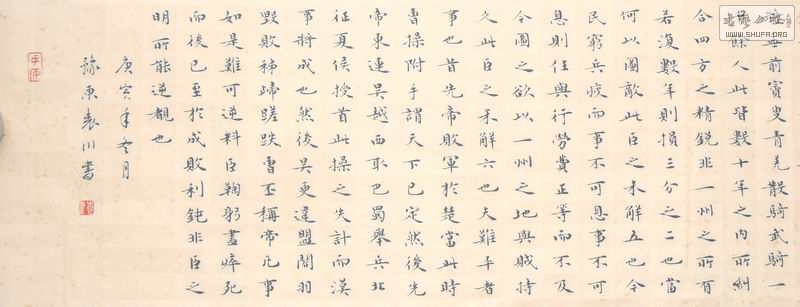 無前賨叟青羌散騎武騎一
千餘人此皆數十年之內所糾
合四方之精銳非一州之所有
若復數年則損三分之二也當
何以圖敵此臣之未解五也今
民窮兵疲而事不可息事不可
息則住與行勞費正等而不及
今圖之欲以一州之地與賊持
久此臣之未解六也夫難平者
事也昔先帝敗軍於楚當此時
曹操附手謂天下已定然後先
帝東連吳越西取巴蜀舉兵北
征夏侯授首此操之失計而漢
事將成也然後吳更違盟關羽
毀敗秭歸蹉跌曹丕稱帝凡事
如是難可逆料臣鞠躬盡瘁死
而後已至於成敗利鈍非臣之
明所能逆覩也
庚寅年冬月
豫東袁川書
www.SHUFA.org